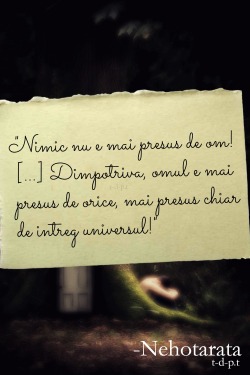 "Nimic nu e mai presus de om!
[...] Dimpotriva, omul e mai
presus de orice, mai presus chiar
de intreg universul!"
-Nehotarata
t-d-p.t